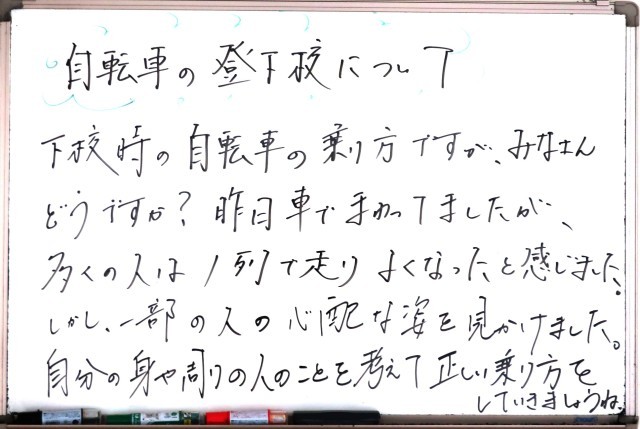 自転車の登下校について
下校時の自転車の乗り方ですが、みなさん
どうですか？昨日車でまわってましたが、
多くの人は1列で走りよくなったと感じました。
しかし、一部の人の心配な姿を見かけました。
自分の身や周りの人のことを考えて正しい乗り方を
していきましょうね。